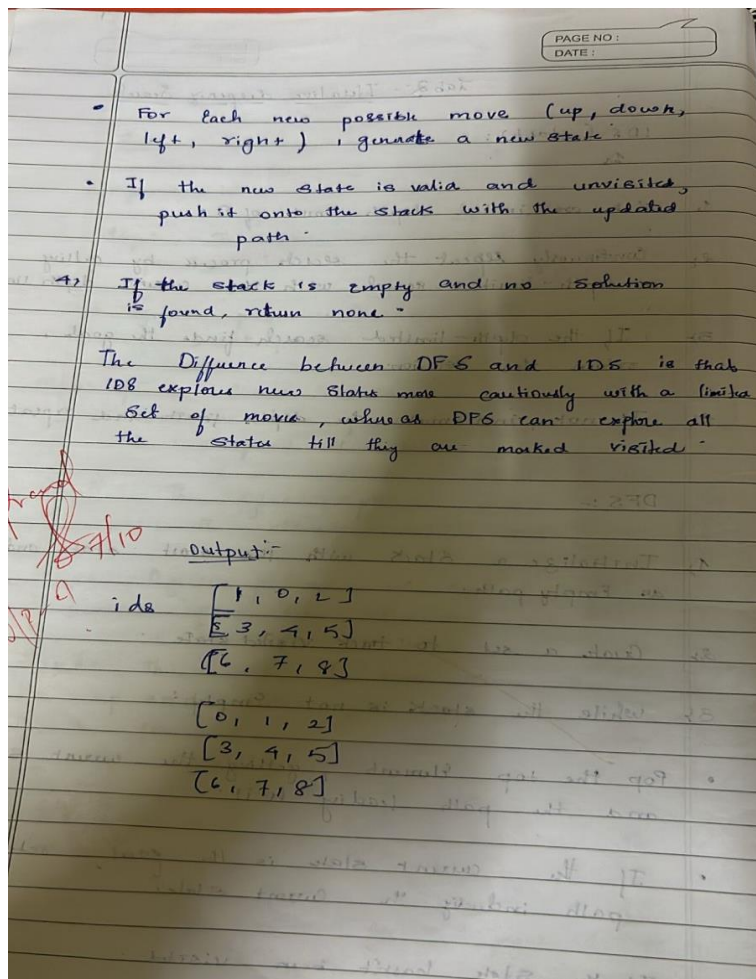 PAGE NO :
DATE :
• For Each new possible move (up, down,
left, right) , generate a new state.
• If the new state is valid and unvisited,
push it onto the stack with the updated
path.
4) If the stack is empty and no solution
is found, return none.
The Difference between DFS and IDS is that
IDS explores new States more cautiously with a limited
Set of moves, whereas DFS can explore all
the States till they are marked visited.
7/10
Output:-
ids [1, 0, 2]
[3, 4, 5]
[6, 7, 8]
[0, 1, 2]
[3, 4, 5]
[6, 7, 8]